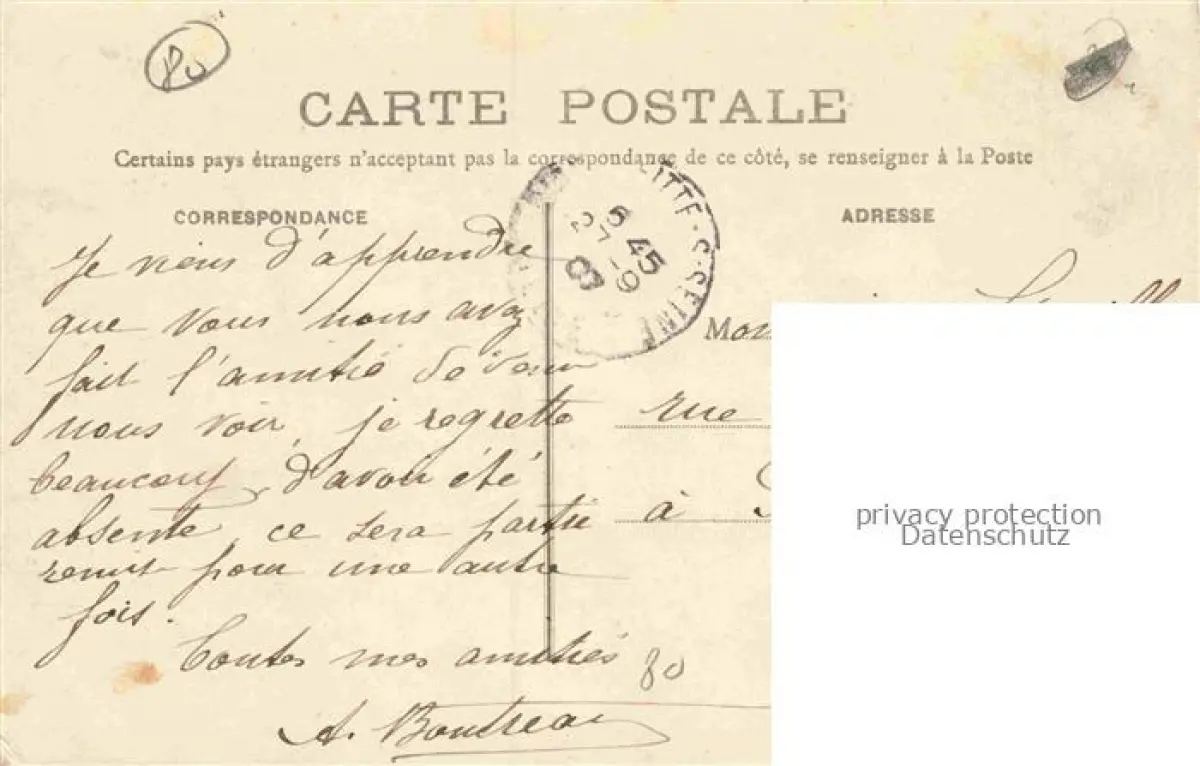 80
CARTE POSTALE
Certains pays étrangers n'acceptant pas la correspondance de ce côté, se renseigner à la Poste
CORRESPONDANCE
ADRESSE
ITTE-S-SEINE
45
Je viens d'apprendre
que vous nous avez
fait l'amitié de venir
nous voir, je regrette
beaucoup d'avoir été
absente, ce sera partie
remise pour une autre
fois.
Toutes mes amitiés
A. Boutreau
80
Mon
rue
à
privacy protection
Datenschutz